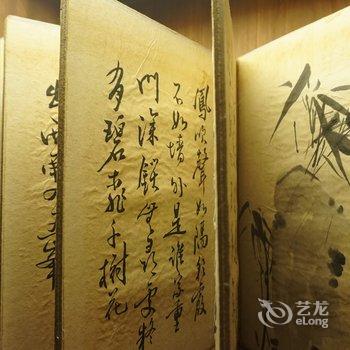 鳳吹聲如隔彩霞
不知墻外是誰家重
門深鎖無尋處疑
有碧桃千樹花
艺龙
eLong